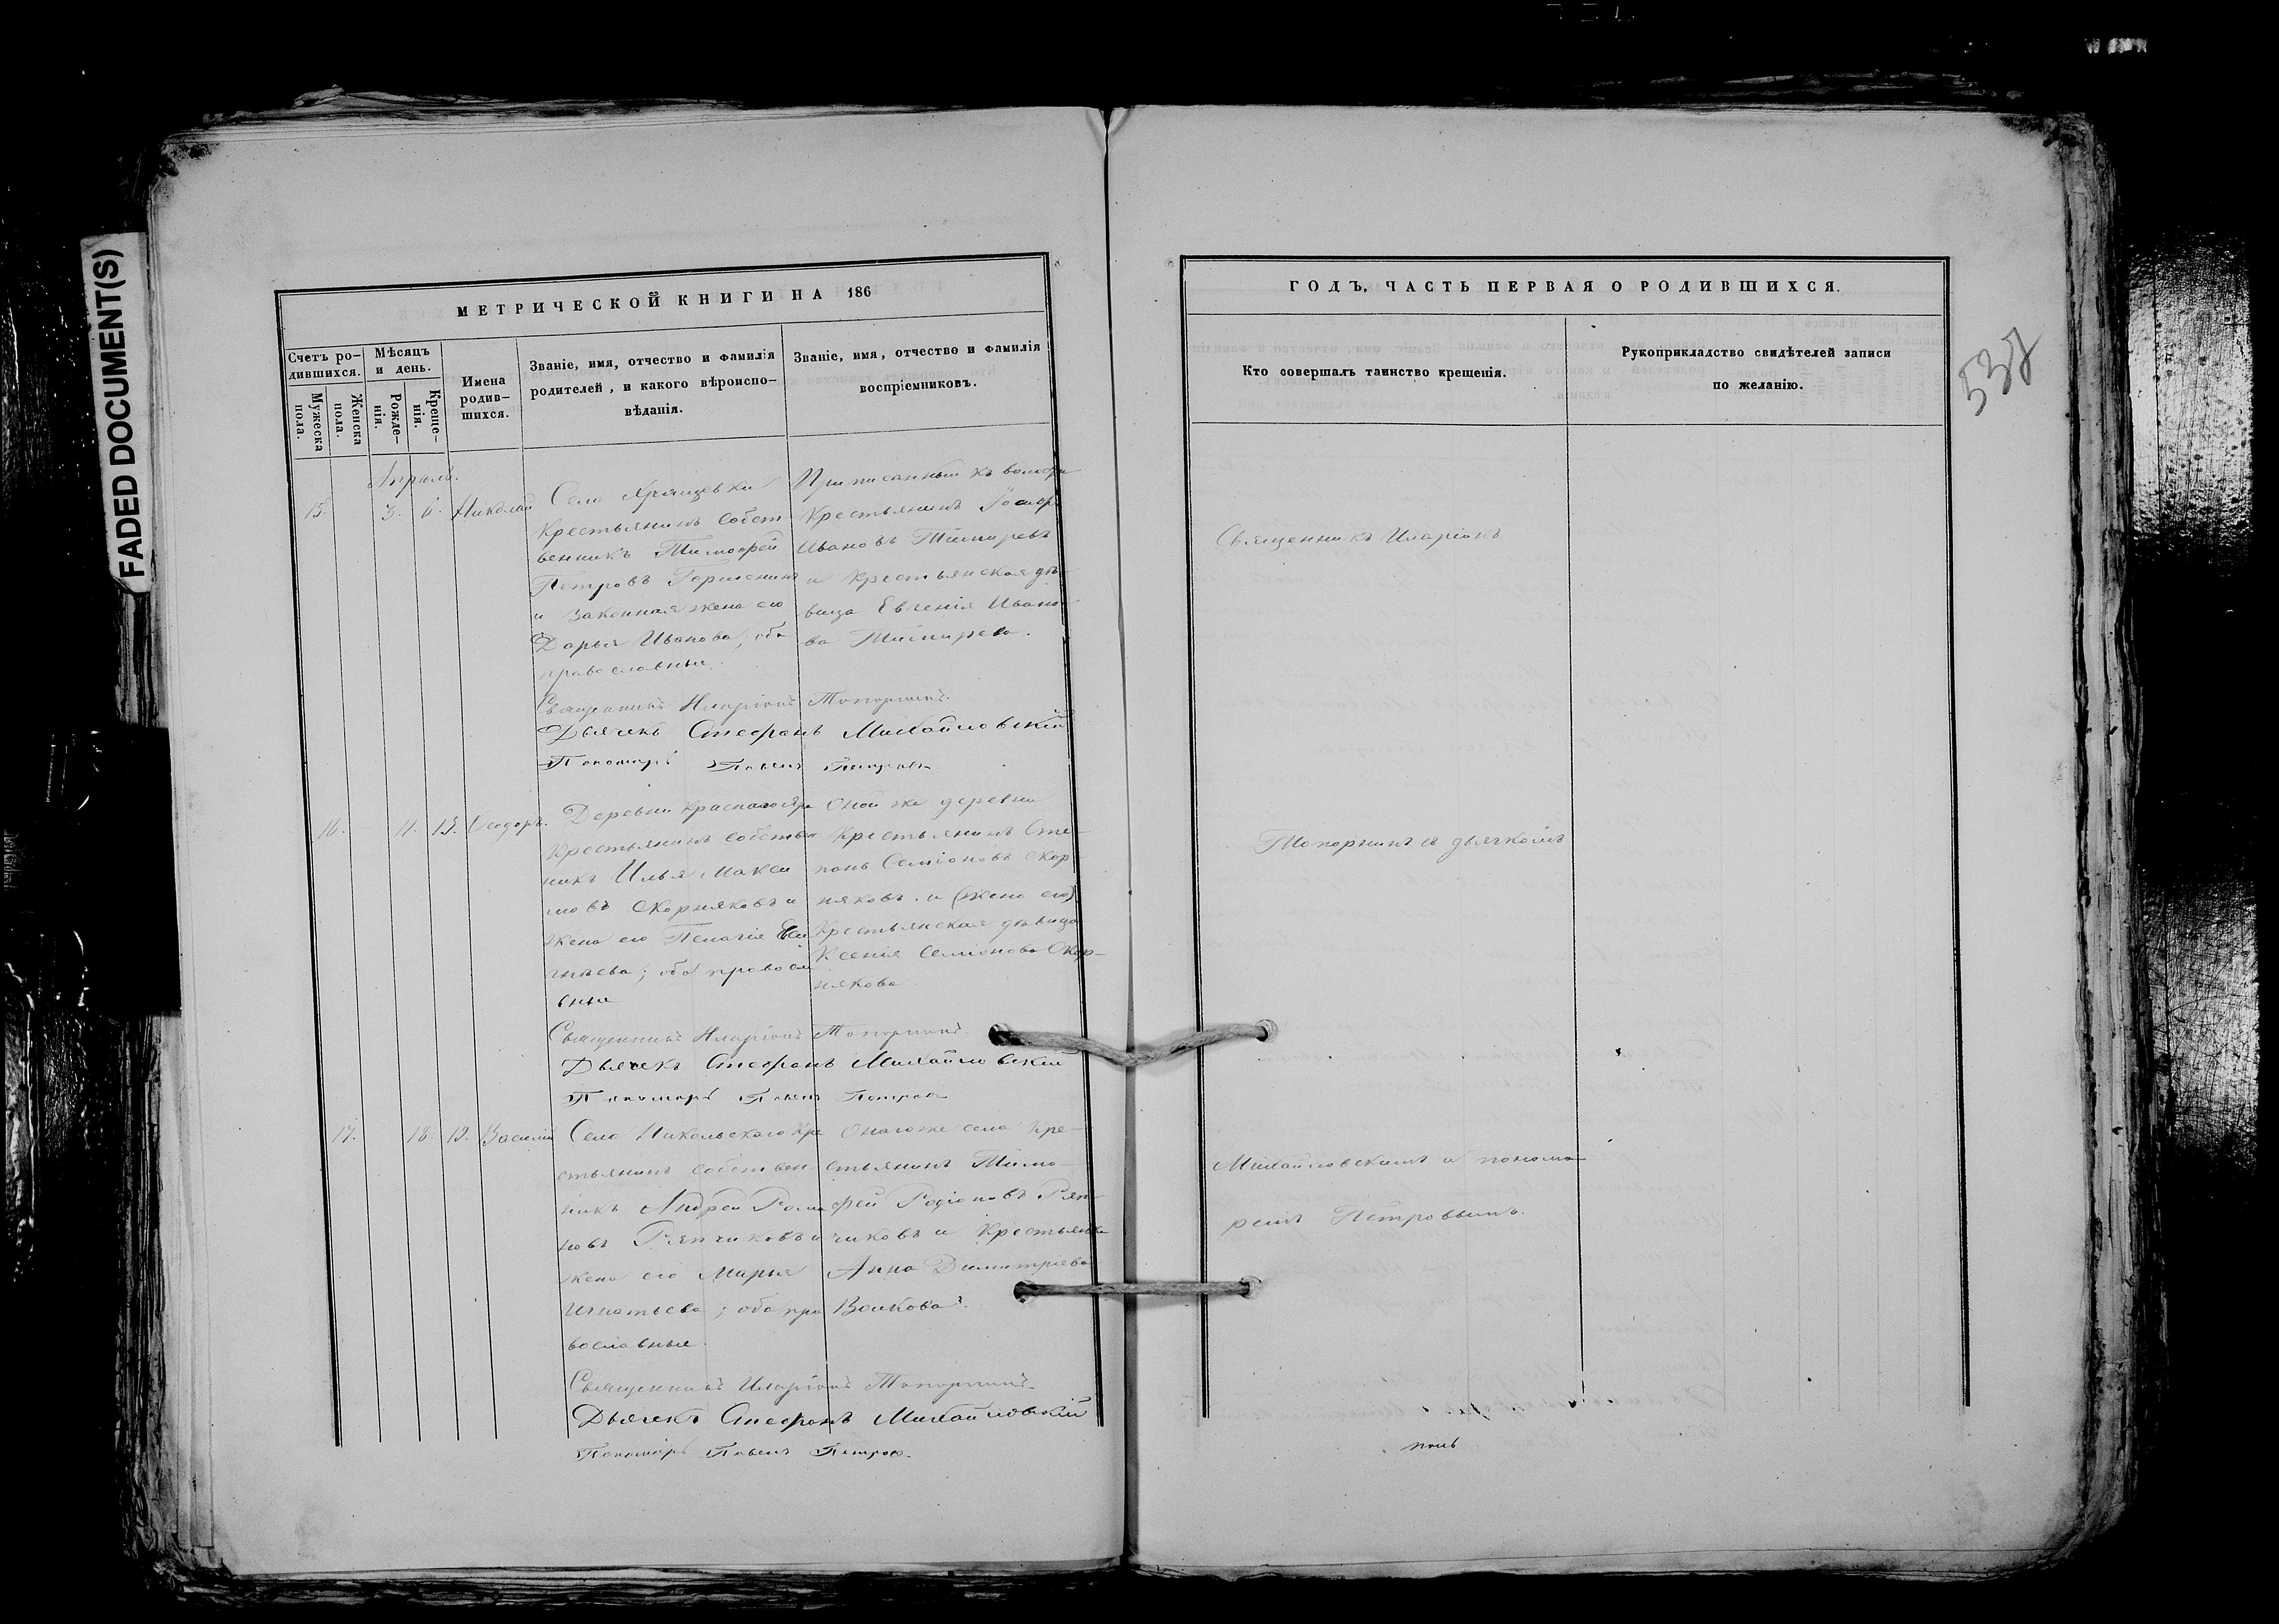 FADED DOCUMENT(S)
МЕТРИЧЕСКОЙ КНИГИ НА 186
Счетъ ро-
дившихся.
Мужеска
пола.
Женска
пола.
Мѣсяцъ
и день.
Рожде-
нія.
Креще-
нія.
Имена
родив-
шихся.
Званіе, имя, отчество и фамилія
родителей, и какого вѣроиспо-
вѣданія.
Званіе, имя, отчество и фамилія
воспріемниковъ.
Апрѣль.
15. 3. 6. Николай
Села Хрящевки
Крестьянинъ собст-
венникъ Тимофей
Петровъ
и законная жена его
Дарья Иванова, оба
православные.
Приписанный къ
Крестьянинъ
Ивановъ
и крестьянская дѣ-
вица Евгенія Ивано-
ва
Священникъ Иларіонъ Топорнинъ.
Дьячекъ Стефанъ Михайловскій
Пономарь Павелъ Петровъ
16. 11. 13. Ѳеодоръ.
Деревни
Крестьянинъ собствен
никъ Илья Макси
мовъ Скорняковъ и
жена его Пелагія
оба правосла
вные
Оной же деревни
Крестьянинъ Сте-
панъ Семіоновъ Скор-
няковъ. и (жена его)
Крестьянская дѣвица
Ксенія Семіонова Скор-
някова
Священникъ Иларіонъ Топорнинъ
Дьячекъ Стефанъ Михайловскій
Пономарь Павелъ Петровъ
17. 18. 19. Василій
Села Никольскаго Кре
стьянинъ собствен-
никъ Андрей Рома
новъ Ряпчиковъ и
жена его Марья
Игнатьева; оба пра
вославные.
Онаго же села Кре-
стьянинъ Тимо-
фей Родіоновъ Ряп-
чиковъ и крестьянка
Анна Димитріева
Волкова.
Священникъ Иларіонъ Топорнинъ.
Дьячекъ Стефанъ Михайловскій
Пономарь Павелъ Петровъ
ГОДЪ, ЧАСТЬ ПЕРВАЯ О РОДИВШИХСЯ.
Кто совершалъ таинство крещенія.
Рукоприкладство свидѣтелей записи
по желанію.
Священникъ Иларіонъ
Топорнинъ съ дьячкомъ
Михайловскимъ и понома-
ремъ Петровымъ.